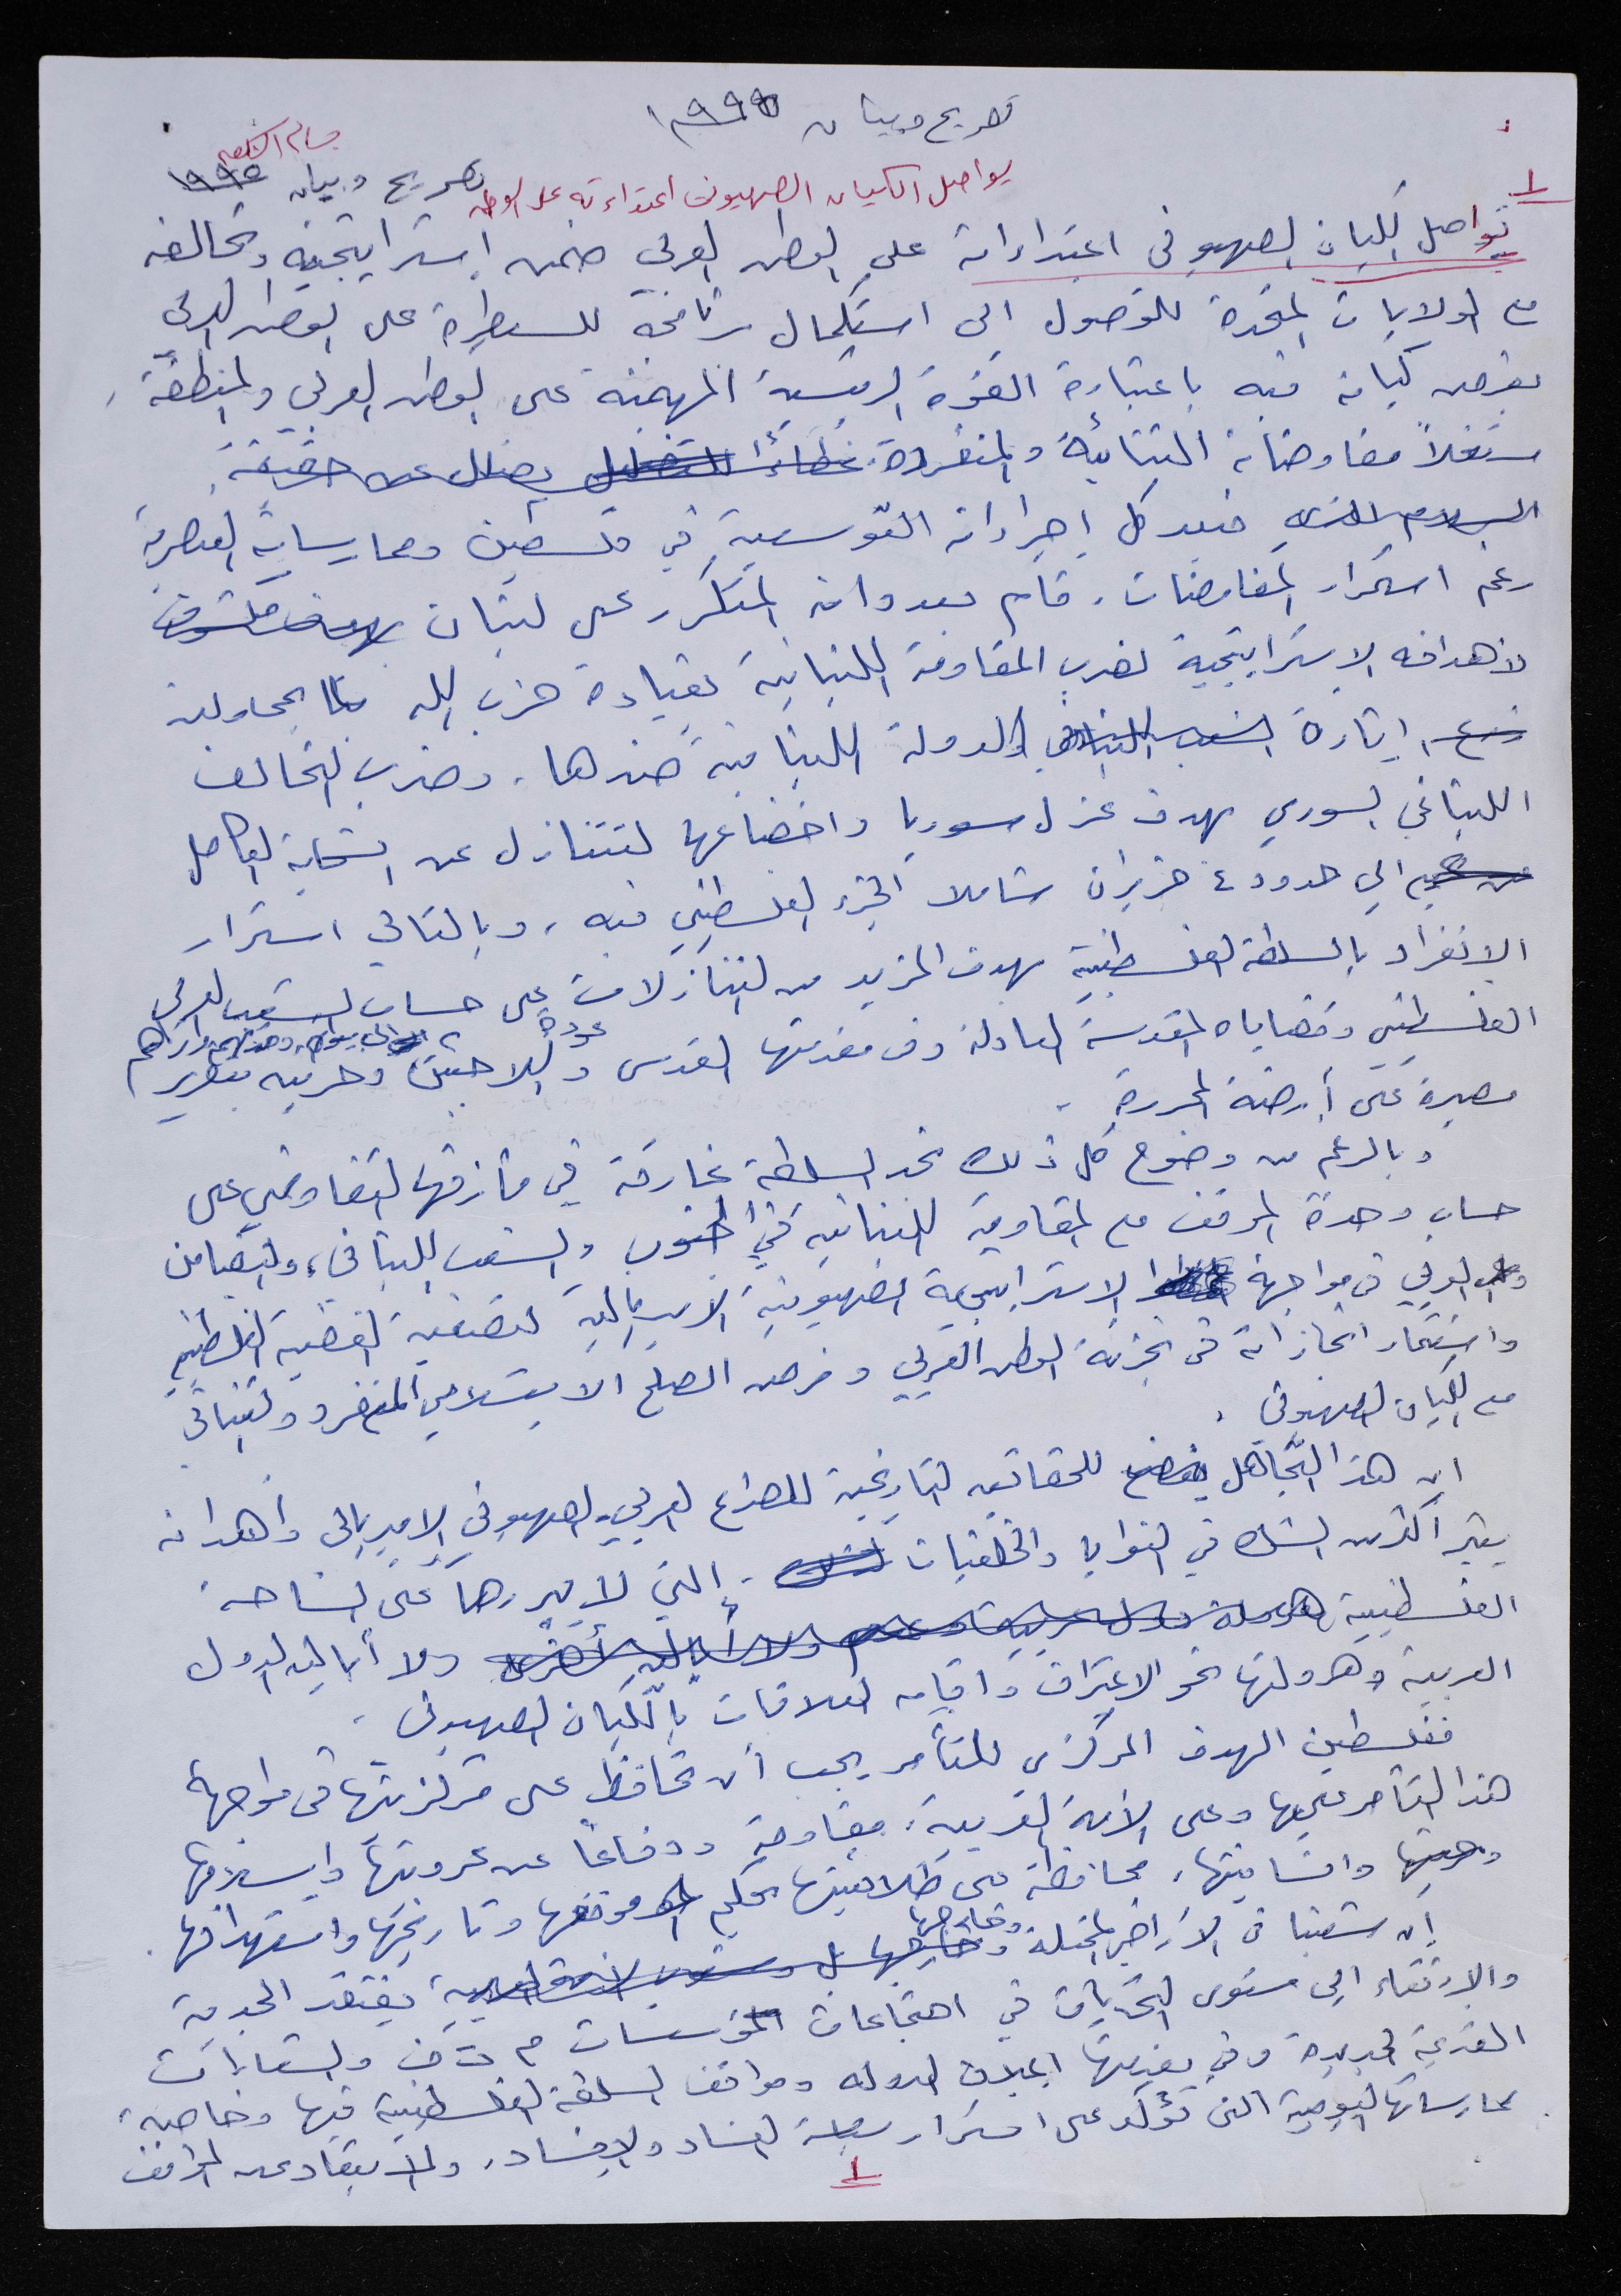 تصريح وبيان ١٩٩٥
بسام الشكعه
تصريح وبيان ١٩٩٥
يواصل الكيان الصهيوني اعتداءته على الوطن
١
تواصل الكيان الصهيوني اعتداءاته على الوطن العربي ضمن إستراتيجيته وتحالفه
مع الولايات المتحدة للوصول الى استكمال برنامجه للسيطرة على الوطن العربي
بفرض كيانه فيه باعتباره القوة الرئيسية المهيمنه على الوطن العربي والمنطقة،
مستغلاً مفاوضاته الثنائية والمنفردة غطاءً للتضليل يضلل عن حقيقة
السلام الذي فبعد كل إجراءاته التوسعية في فلسطين وممارساته العنصرية
رغم استمرار المفاوضات، قام بعدوانه المتكرر على لبنان بهدف مكشوف
لأهدافه الإستراتيجية لضرب المقاومة اللبنانية بقيادة حزب الله بمحاولة
إثارة الشعب اللبناني والدولة اللبنانية ضدها. وضرب التحالف
اللبناني السوري بهدف عزل سوريا واخضاعها لتتنازل عن انسحابه الكامل
الى حدود ٤ حزيران شاملا الجزء الفلسطيني فيه، وبالتالي استمرار
الانفراد بالسلطة الفلسطينية بهدف المزيد من التنازلات على حساب الشعب العربي
الفلسطيني وقضاياه المقدسة العادلة وفي مقدمتها القدس وعودة اللاجئين الى بيوتهم وأراضيهم وحريه بتقرير
مصيره على أرضه المحررة.
وبالرغم من وضوح كل ذلك نجد السلطة غارقة في مأزقها التفاوضي على
حساب وحدة الموقف مع المقاومة اللبنانية في الجنوب والشعب اللبناني، والتضامن
العربي في مواجهة الاستراتيجية الصهيونية الامبريالية لتصفية القضية الفلسطينية
واستثمار انجازاته في تجزئة الوطن العربي وفرض الصلح الاستسلامي المنفرد والثنائي
مع الكيان الصهيوني.
ان هذا التجاهل للحقائق التاريخية للصراع العربي الصهيوني الامبريالي وأهدافه
يثير أكثر من الشك في النوايا والخلفيات، التي لا مبرر لها على الساحة
الفلسطينية ولا أنا ليه الدول
العربية وهرولتها نحو الاعتراف واقامه العلاقات بالكيان الصهيوني.
ففلسطين الهدف المركزي للتآمر يجب أن تحافظ على مركزيتها في مواجهة
هذا التآمر عليها وعلى الأمة العربية، مقاومة ودفاعاً عن عروبتها وإسلامها
وانسانيتها، محافظة على طلائعيتها بحكم موقعها وتاريخها واستهدافها.
إن شعبنا في الأراضي المحتلة وخارجها يفتقد الجدية
والارتقاء الى مستوى التحديات في اجتماعات المؤسسات م ت ف والشعارات
الفرعية الجديدة وفي مقدمتها إعلان الدولة ومواقف السلطة الفلسطينية فيها وخاصة
ممارساتها اليومية التي تؤكد على استمرار سياسة الفساد والإفساد، والابتعاد عن المواقف
١